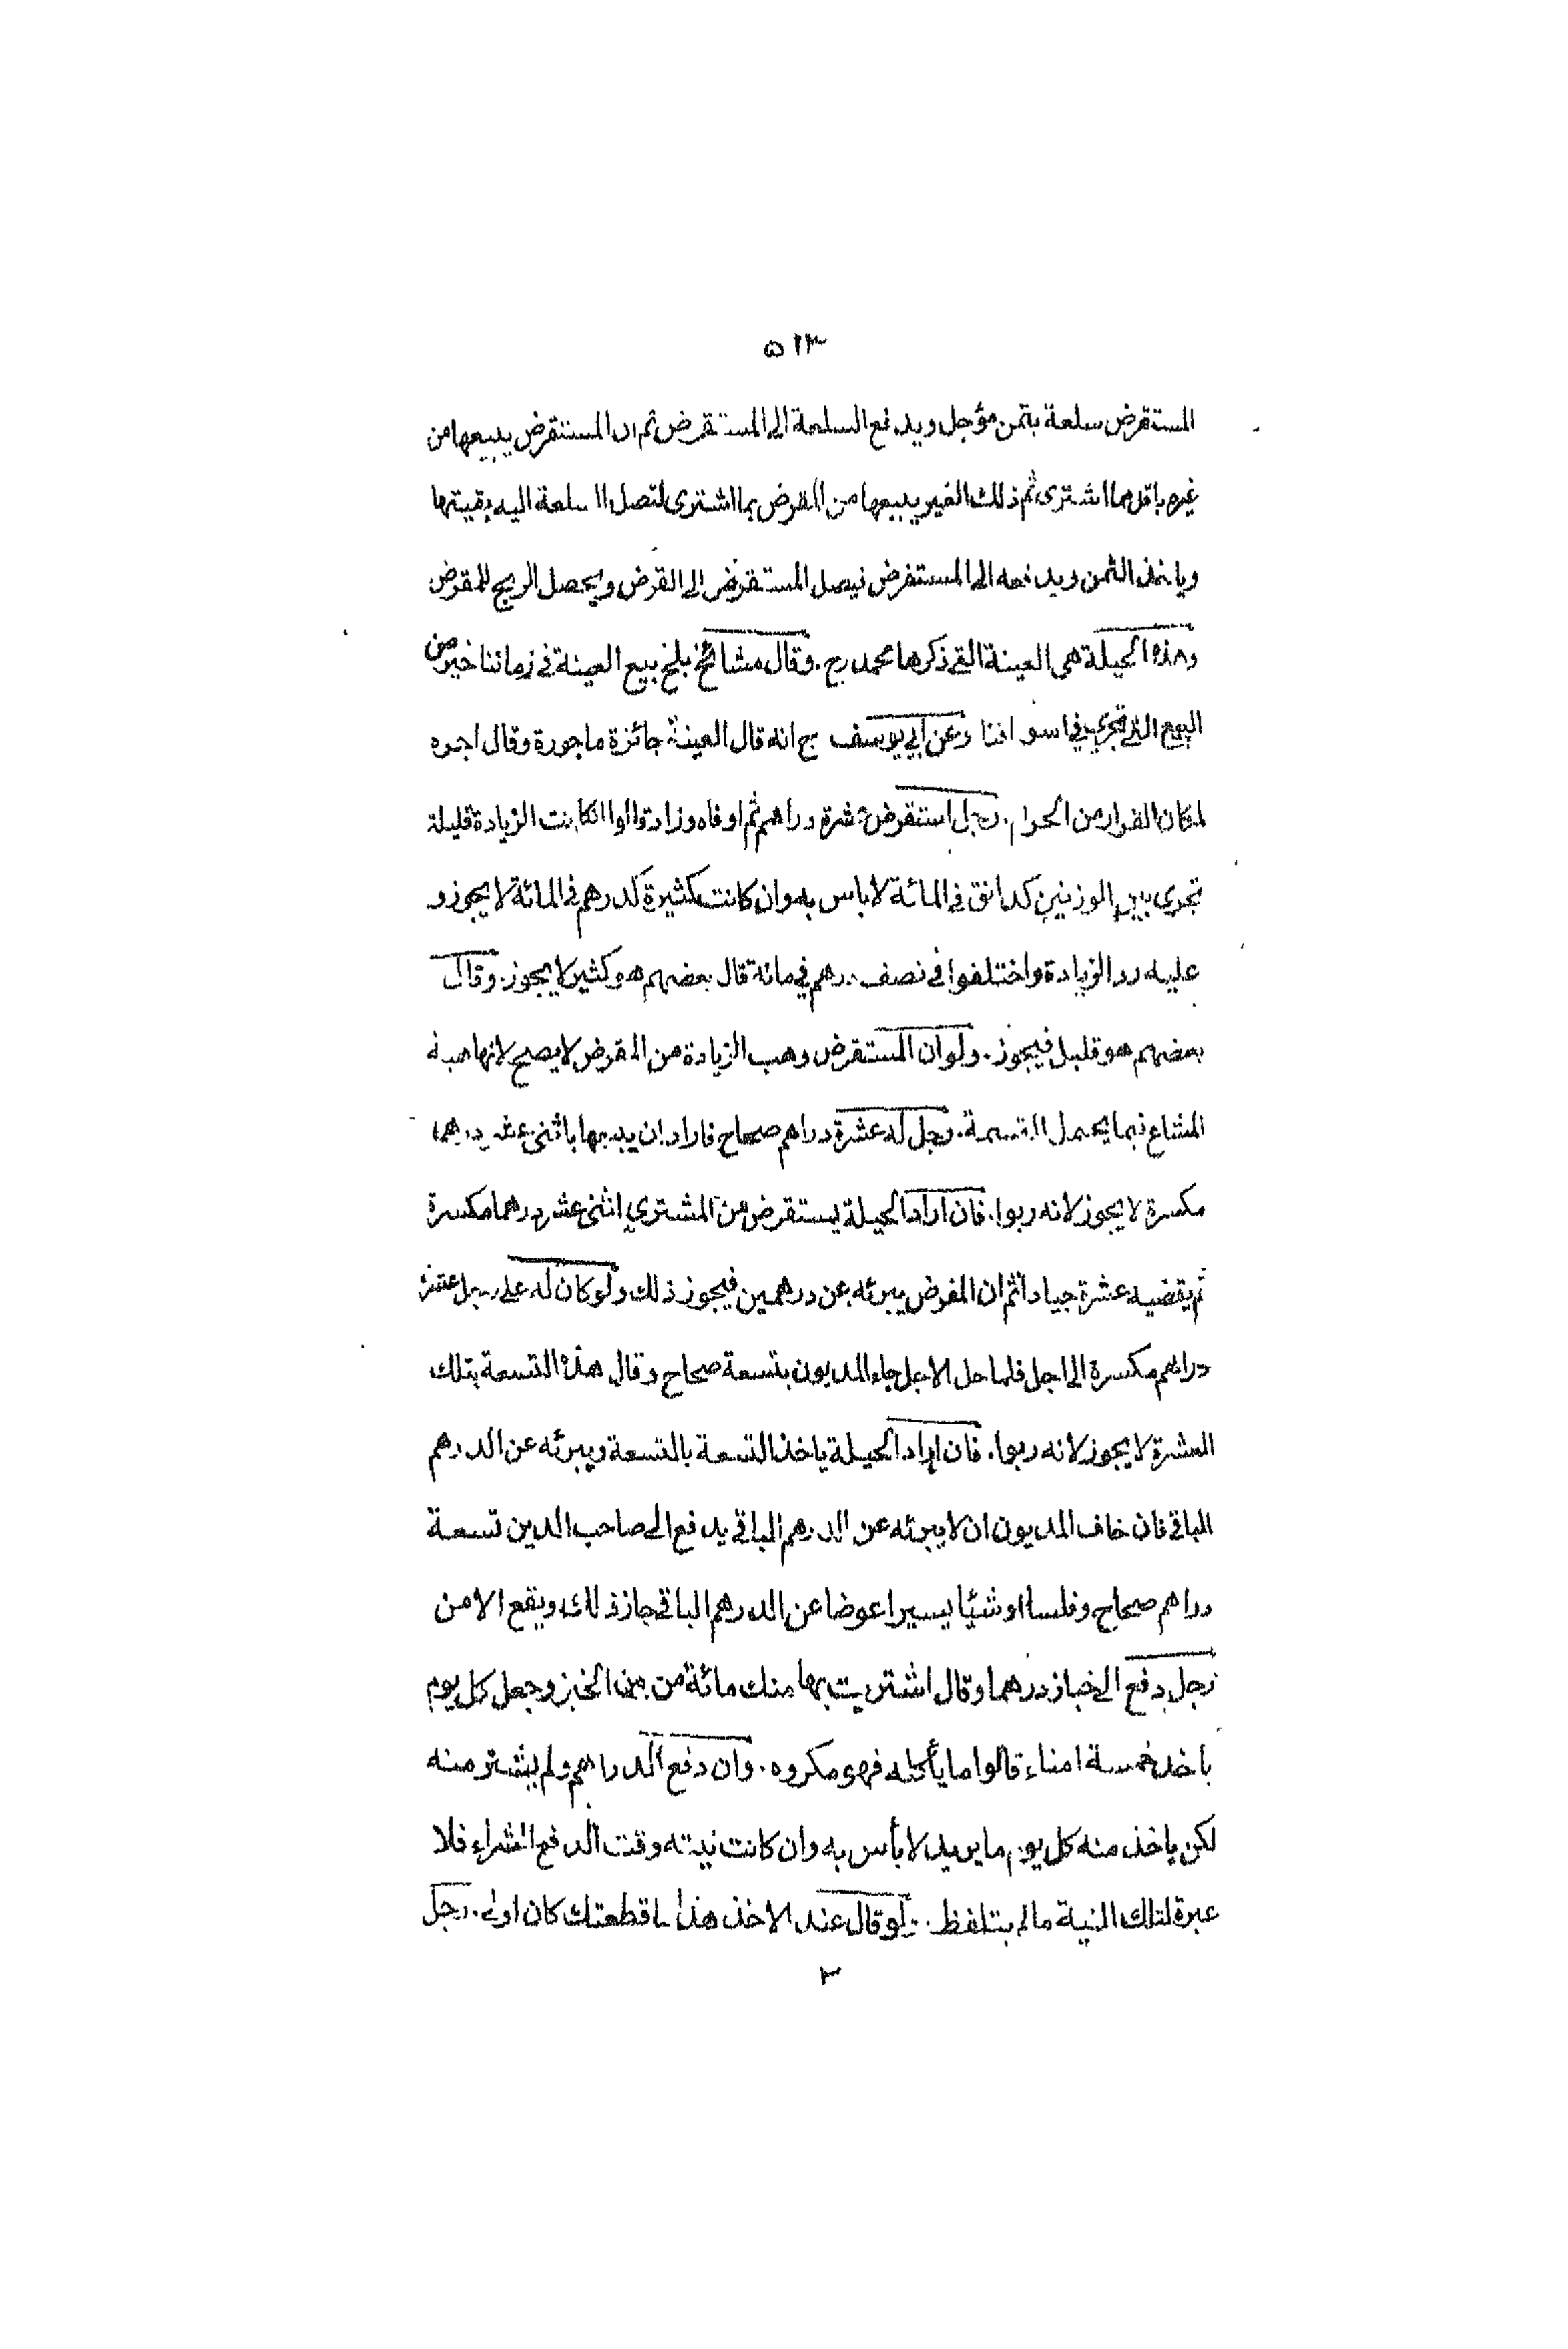 ٥١٣
المستقرض سلعة بثمن مؤجل ويدفع السلعة الى المستقرض ثم ان المستقرض يبيعها من
غيره باقل مما اشترى ثم ذلك الغير يبيعها من المقرض بما اشترى لتصل السلعة اليه بقيتها
وياخذ الثمن ويدفعه الى المستقرض فيصل المستقرض الى القرض ويحصل الربح للمقرض
وهذه الحيلة هى العينة التى ذكرها محمد رح. وقال مشائخ بلخ بيع العينة فى زماننا خير من
البيع التى تجرى فى اسواقنا وعن ابي يوسف رح انه قال العينة جائزة ماجورة وقال اجره
لمكان الفرار من الحرام. رجل استقرض عشرة دراهم ثم اوفاه وزاد قالوا ان كانت الزيادة قليلة
تجرى بين الوزنين كدانق فى المائة لاباس به وان كانت كثيرة كدرهم فى المائة لا يجوز و
عليه رد الزيادة واختلفوا فى نصف درهم في مائة قال بعضهم هو كثير لا يجوز. وقال
بعضهم هو قليل فيجوز. ولو ان المستقرض وهب الزيادة من المقرض لا يصح لانها هبة
المشاع فيما يحتمل القسمة. رجل له عشرة دراهم صحاح فاراد ان يبيعها باثنى عشر درهما
مكسرة لا يجوز لانه ربوا. فان اراد الحيلة يستقرض من المشتري اثنى عشر درهما مكسرة
ثم يقضيه عشرة جيادا ثم ان المقرض يبرئه عن درهمين فيجوز ذلك ولو كان له على رجل عشرة
دراهم مكسرة الى اجل فلما حل الاجل جاء المديون بتسعة صحاح وقال هذه التسعة بتلك
العشرة لا يجوز لانه ربوا. فان اراد الحيلة ياخذ التسعة بالتسعة ويبرئه عن الدرهم
الباقى فان خاف المديون ان لا يبرئه عن الدرهم الباقى يدفع الى صاحب الدين تسعة
دراهم صحاح وفلسا او شيئا يسيرا عوضا عن الدرهم الباقى جاز ذلك ويقع الامن
رجل دفع الى خباز درهما وقال اشتريت بها منك مائة من من الخبز وجعل كل يوم
ياخذ خمسة امناء قالوا ما يأكله فهو مكروه. وان دفع الدراهم ولم يشتر منه
لكن ياخذ منه كل يوم ما يريد لا بأس به وان كانت نيته وقت الدفع الشراء فلا
عبرة لتلك النية مالم يتلفظ. لو قال عند الاخذ هذا ما قطعتك كان اولى. رجل
٣